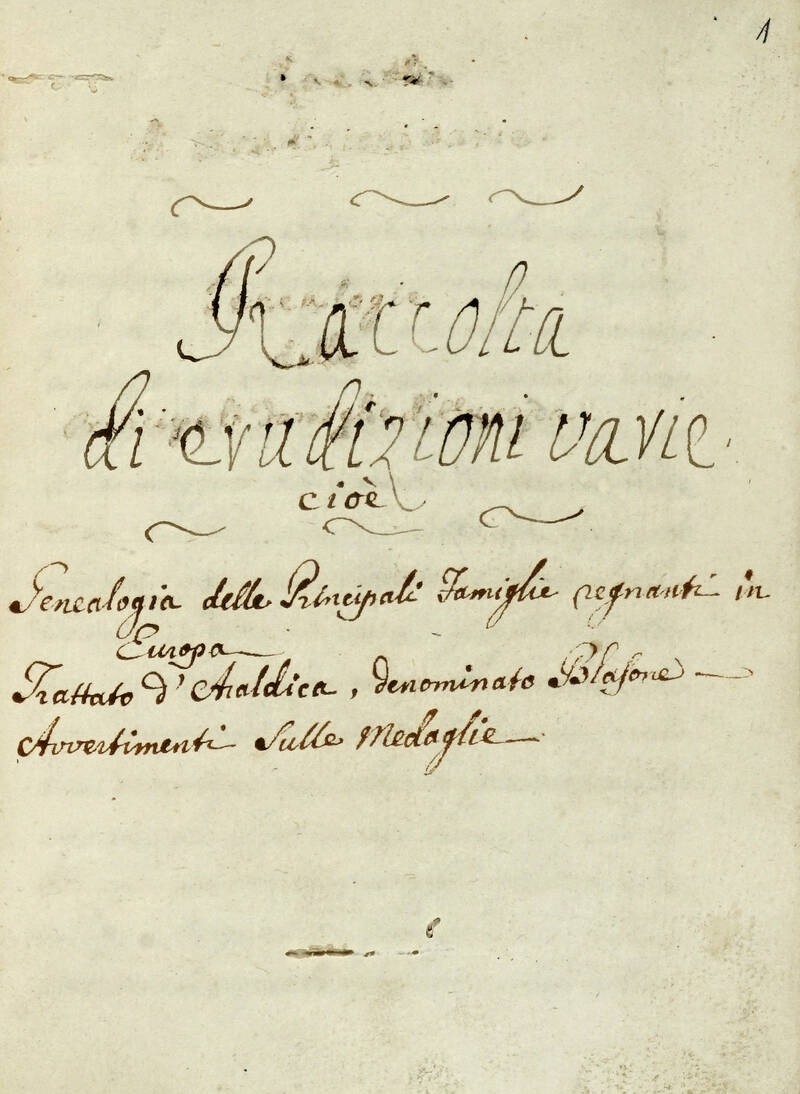 1
Raccolta
di erudizioni varie.
cioè
Genealogia delle Principali Famiglie regnanti in
Europa
Trattato d'Araldica, denominato Blasone
Avvertimenti Sulle Medaglie